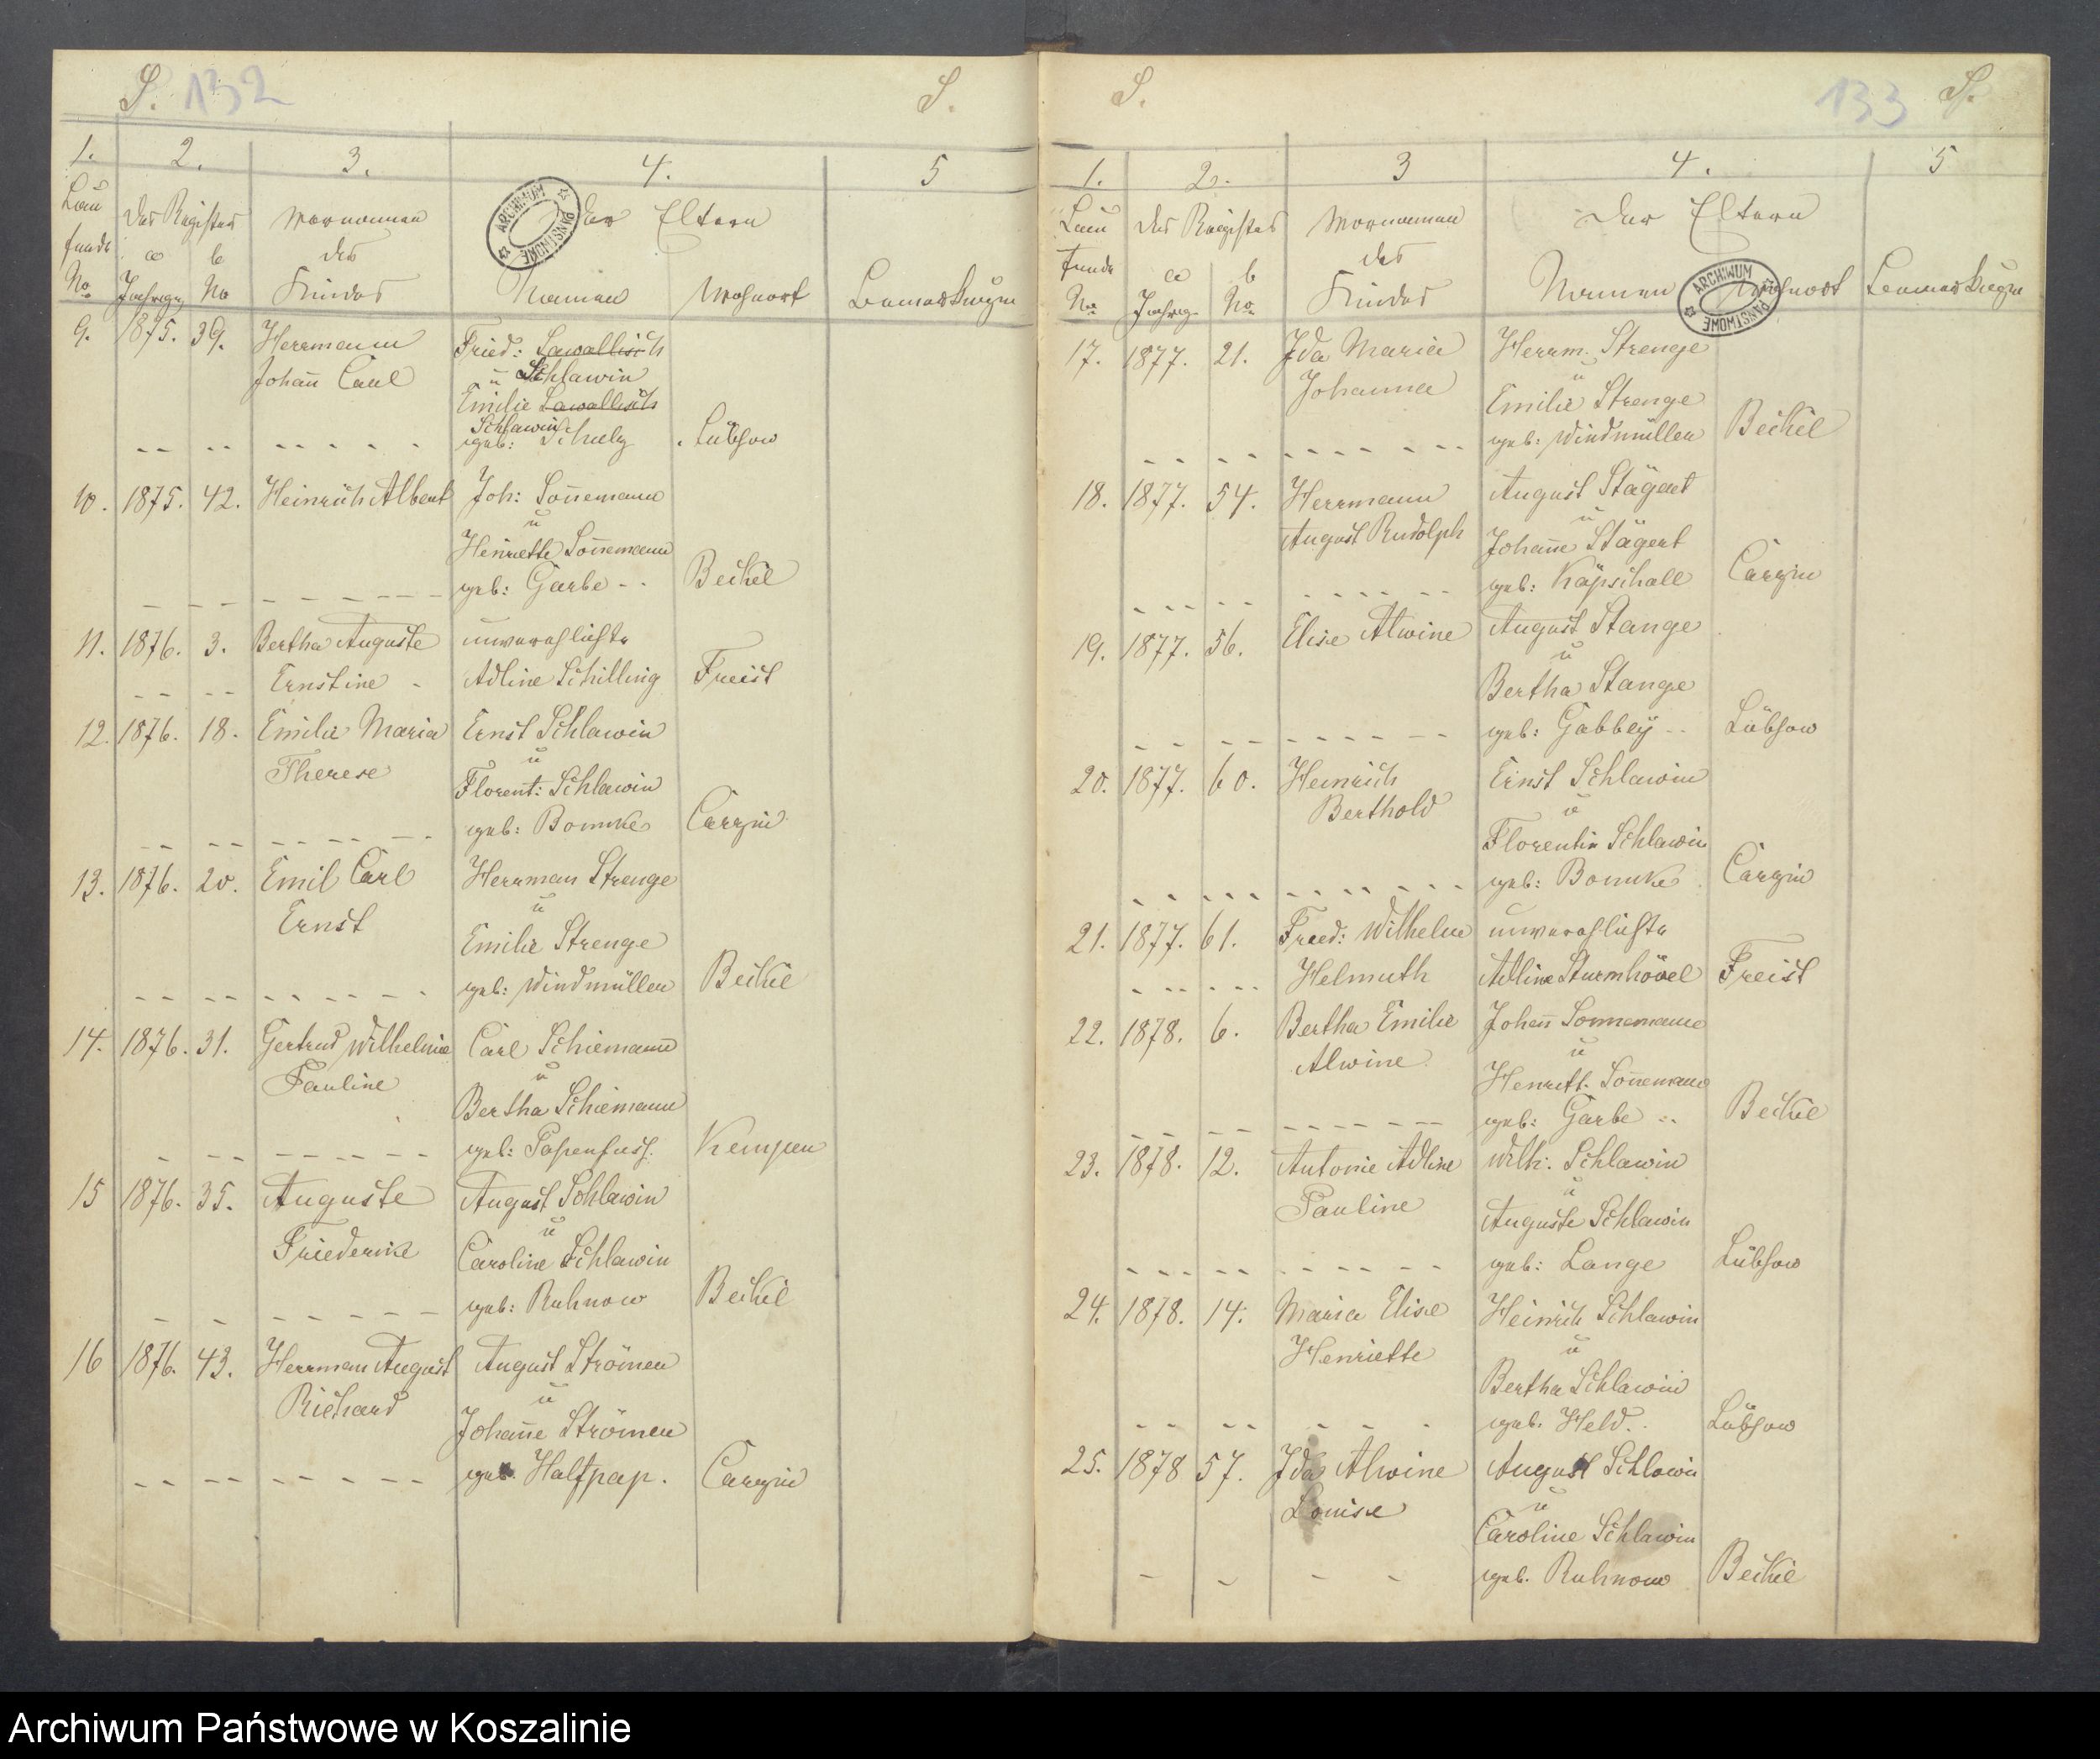 S. 132 S.
1. 2. 3. 4. 5
Lau Des Registers Vornamen Der Eltern
fende a b des
No Jahrg. No Kindes Namen Wohnort Bemerkungen
9. 1875. 39. Herrmann Fried: Sawallisch
Johan̄ Carl ū Schlawin
Emilie Sawallisch
Schlawin
geb: Schulz Lübsow
10. 1875. 42. Heinrich Albert Joh: Son̄emann
ū
Henriette Son̄emann
geb: Garbe Beckel
11. 1876. 3. Bertha Auguste unverehlichte
Ernstine Adline Schilling Freist
12. 1876. 18. Emilie Maria Ernst Schlawin
Therese ū
Florent: Schlawin
geb: Bomke Carzin
13. 1876. 20. Emil Carl Herrman Strenge
Ernst ū
Emilie Strenge
geb: Windmüller Beckel
14. 1876. 31. Gertrud Wilhelmine Carl Schiemann
Pauline ū
Bertha Schiemann
geb: Papenfuss. Kempen
15 1876. 35. Auguste August Schlawin
Friederike ū
Caroline Schlawin
geb: Ruhnow Beckel
16 1876. 43. Herrman August August Strömer
Richard ū
Johan̄e Strömer
geb. Halfpap. Carzin
S. 133 S.
1. 2. 3 4. 5
Lau Des Registers Vornamen Der Eltern
fende a b des
No Jahrg. No Kindes Namen Wohnort Bemerkungen
17. 1877. 21. Ida Maria Herrm. Strenge
Johanna ū
Emilie Strenge
geb: Windmüller Beckel
18. 1877. 54. Herrmann August Stägert
August Rudolph ū
Johan̄e Stägert
geb: Käpschall Carzin
19. 1877. 56. Elise Alwine August Stange
ū
Bertha Stange
geb: Gabbey Lübsow
20. 1877. 60. Heinrich Ernst Schlawin
Berthold ū
Florentin Schlawin
geb: Bomke Carzin
21. 1877. 61. Fried: Wilhelm unverehlichte
Helmuth Adline Sturmhövel Freist
22. 1878. 6. Bertha Emilie Johan̄ Sonnemann
Alwine ū
Henriett. Son̄emann
geb: Garbe Beckel
23. 1878. 12. Antonie Adline Wilh: Schlawin
Pauline ū
Auguste Schlawin
geb: Lange Lübsow
24. 1878. 14. Maria Elise Heinrich Schlawin
Henriette ū
Bertha Schlawin
geb. Held. Lübsow
25. 1878 57. Ida Alwine August Schlawin
Louise ū
Caroline Schlawin
geb. Ruhnow Beckel
ARCHIWUM PAŃSTWOWE
ARCHIWUM PAŃSTWOWE
Archiwum Państwowe w Koszalinie